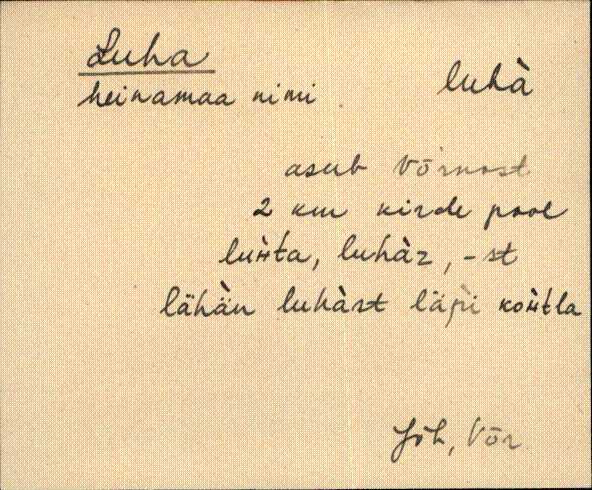 Luha
heinamaa nimi luhà
asub Võrnost
2 km kirde pool
luʜ̀ta, luhàz, -st
lähän luhàst läpi koʜ̀tla
Jõh, Võr